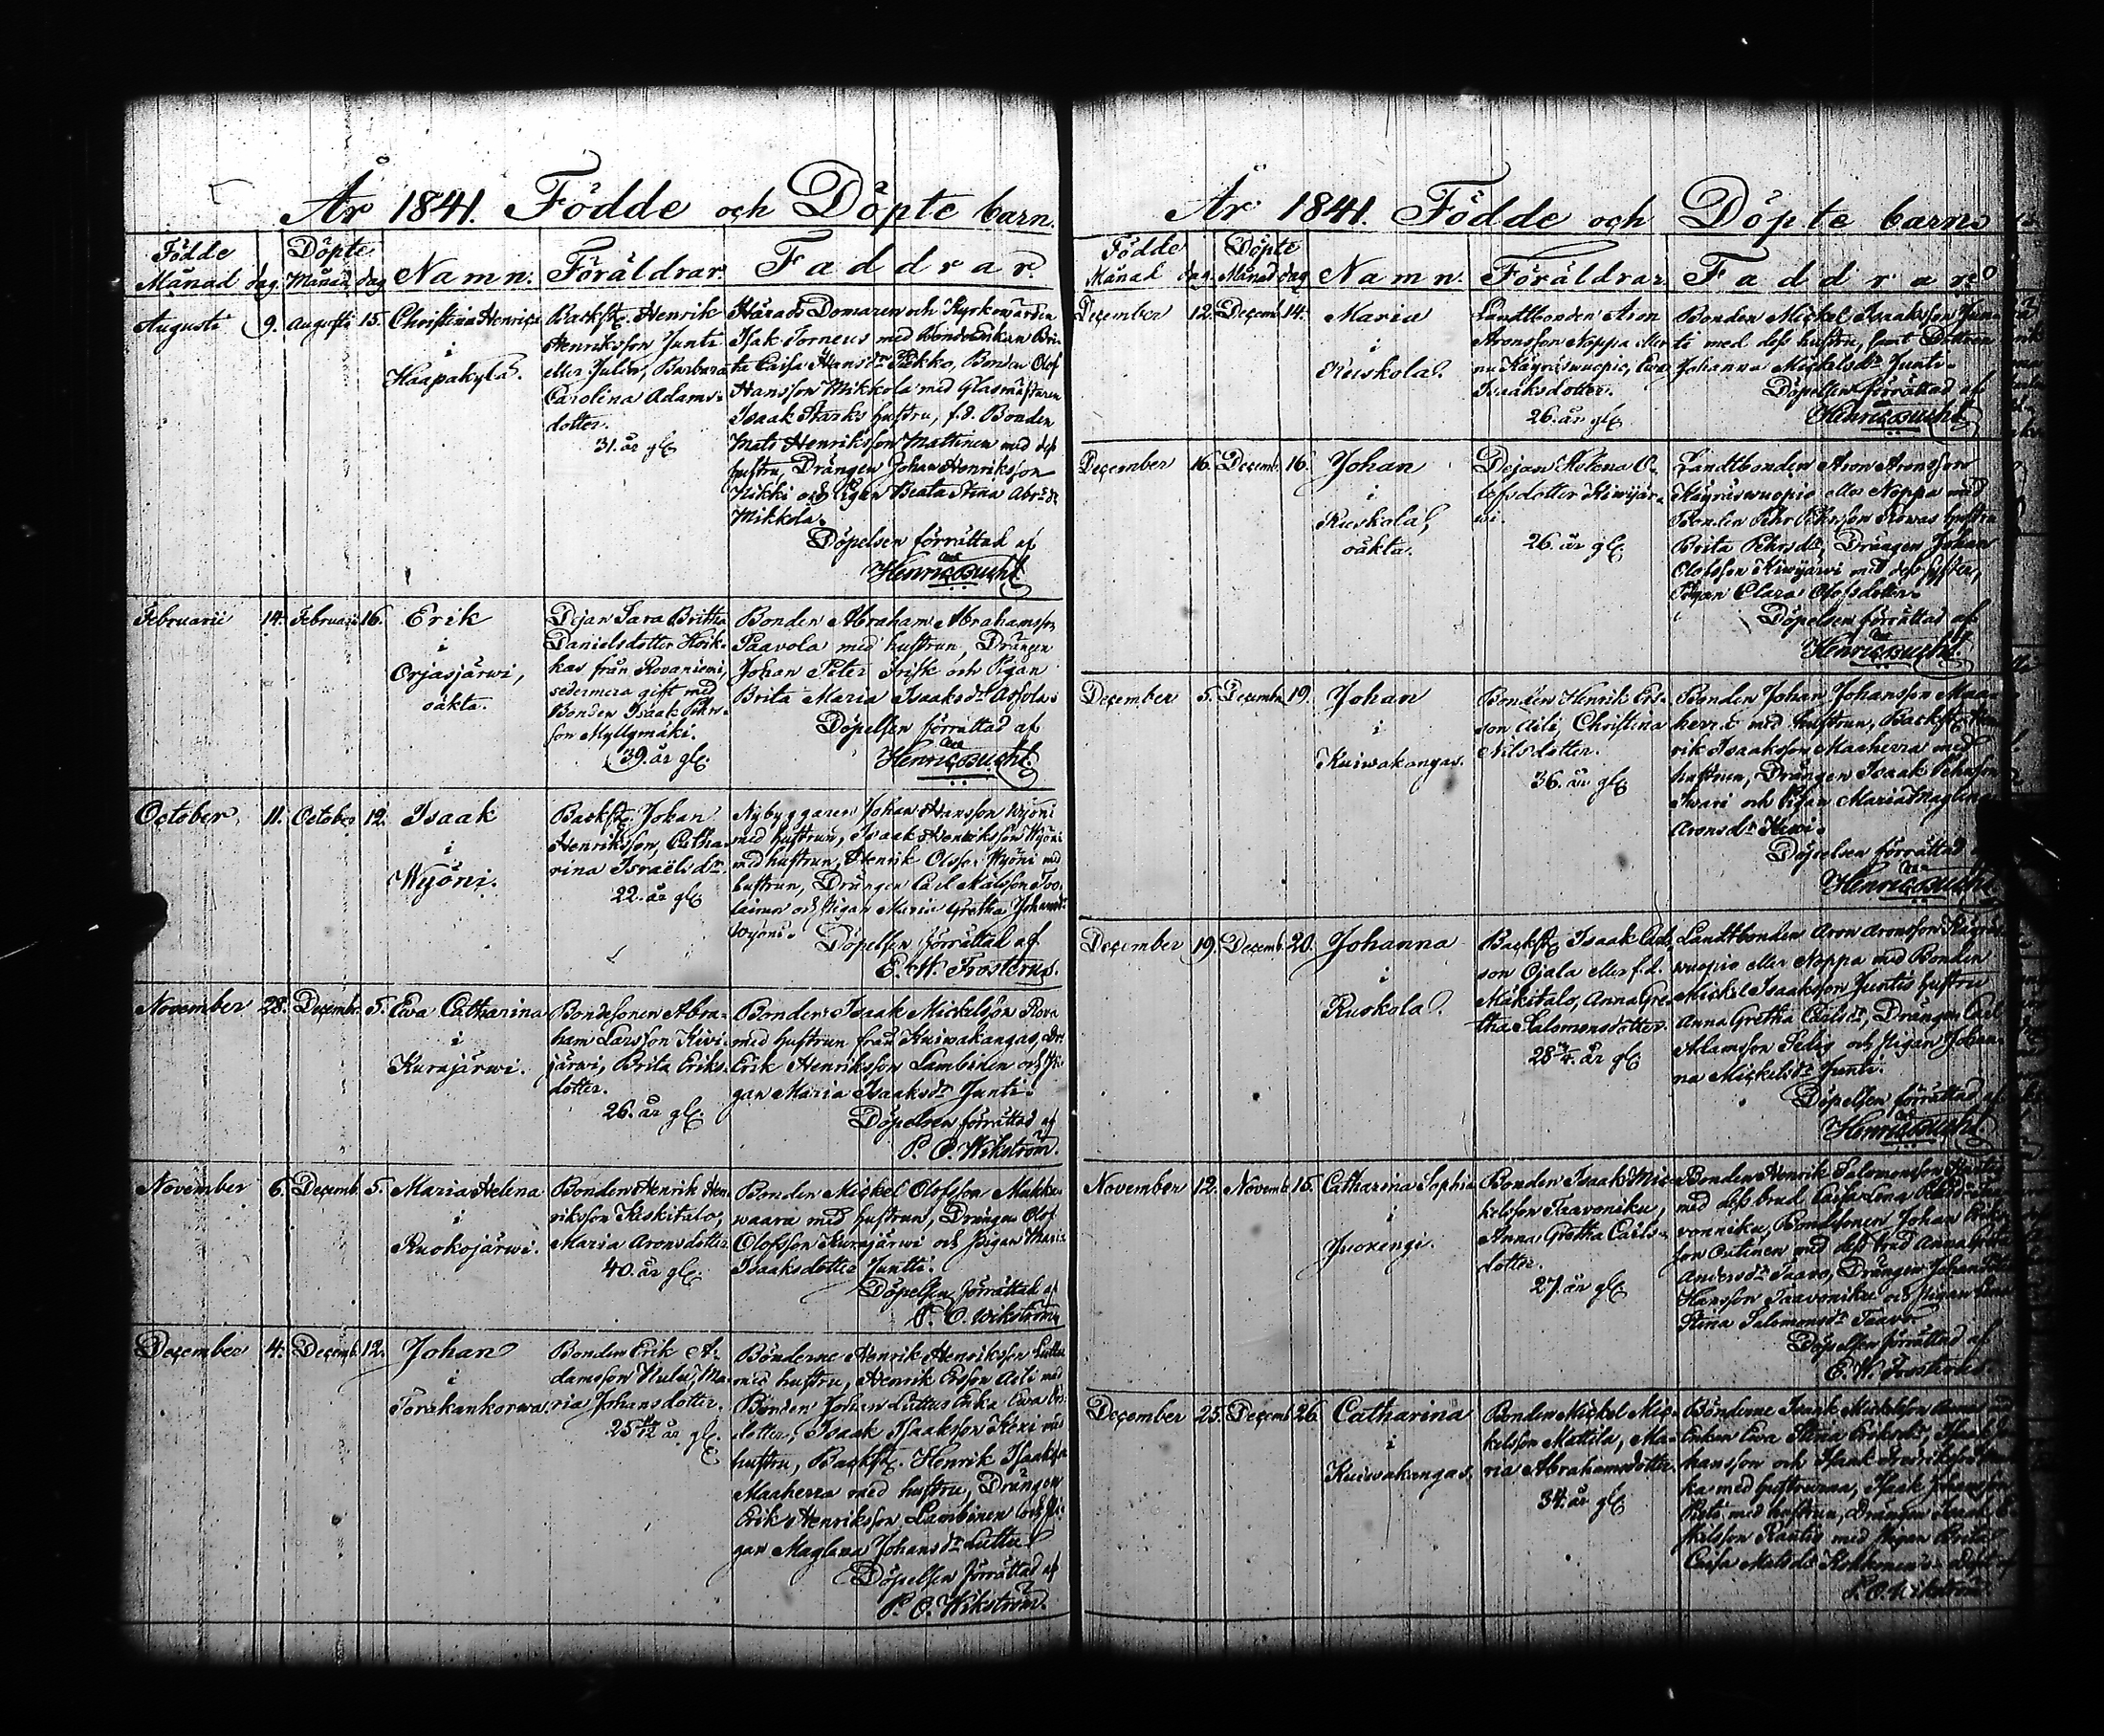 År 1841. Födde och Döpte barn.
Födde Döpte
Månad dag. Månad dag Namn. Föräldrar. Faddrar
Augusti 9. Augusti 15. Christina Henrica
i
Haapakylä.
Backst. Henrik
Henriksson Junti
eller Julin, Barbara
Carolina Adams-
dotter.
31. år gl.
Härads Domaren och Kyrkowärden
Isak Torneus med Bonde Enkan Bri-
ta Caisa Hansdr Pükko, Bonden Olof
Hansson Mikkola med Glasmästaren
Isaak Starks hustru, f.d. Bonden
Mats Henriksson Mattinen med dess
hustru, Drängen Johan Henriksson
Nikki och Pigan Beata Stina Abr:dr
Mikkola.
Döpelsen förrättad af
Henric Bucht
Februarii 14. Februarii 16. Erik
i
Orjasjärwi,
oäkta.
Dejan Sara Britha
Danielsdotter Hosk-
kas från Rovaniemi,
sedermera gift med
Bonden Isaak Pehrs-
son Myllymäki.
39. år gl.
Bonden Abraham Abrahamsson
Paavola med hustrun, Drängen
Johan Peter Frisk och Pigan
Brita Maria Isaaksdr
Döpelsen förrättad af
Henric Bucht.
October 11. October 12. Isaak
i
Wyöni.
Backst. Johan
Henriksson, Catha-
rina Israelsdr.
22. år gl.
Nybyggaren Johan Hansson Wyöni
med hustrun, Isaak Henriksson Wyöni
med hustrun, Henrik Olsson Wyöni med
hustrun, Drängen Carl Matsson
och Pigan Maria Gretha Johansdr
Wyöni.
Döpelsen förrättad af
E. W. Frosterus.
November 28. Decembr. 5. Ewa Catharina
i
Kurajärwi.
Bondesonen Abra-
ham Larsson Kivi-
järwi, Brita Eriks-
dotter.
26. år gl.
Bonden Isaak Mickelsson Rova
med hustrun från Kuiwakangas, Dr.
Erik Henriksson Lambinen och Pi-
gan Maria Isaaksdr Junti.
Döpelsen förrättad af
P. O. Wikström.
November 6. Decemb. 5. Maria Helena
i
Ruokojärwi.
Bonden Henrik Hen-
riksson Keskitalo,
Maria Aronsdotter
40. år gl.
Bonden Mickel Olofsson Mukka-
waara med hustrun, Drängen Olof
Olofsson Kurajärwi och Pigan Maria
Isaaksdotter Juntti.
Döpelsen förrättad af
P. O. Wikström
December 4. Decemb. 12. Johan
i
Torakankorwa.
Bonden Erik A-
damsson Hulu, Ma-
ria Johansdotter.
25 år gl.
Bönderne Henrik Henriksson Luttu
med hustru, Henrik Ersson Aili med
Bonden Johan Luttus Enka Ewa
dotter, Isaak Isaaksson Keksi med
hustru, Backst. Henrik Isaaksson
Maaherra med hustru, Drängen
Erik Henriksson Lambinen och Pi-
gan Maglena Johansdr Luttu
Döpelsen förrättad af
P. O. Wikström.
År 1841. Födde och Döpte barn.
Födde Döpte
Månad dag. Månad dag Namn. Föräldrar Faddrare
December 12. Decemb. 14. Maria
i
Ruskola.
Landtbonden Aron
Aronsson Noppa eller
nu Käyräswuopio, Ewa
Isaaksdotter.
26. år gl.
Bonden Mickel Isaaksson Jun-
ti med dess hustru, samt Dottren
Johanna Mickelsdr Junti.
Döpelsen förrättad af
Henric Bucht
December 16. Decemb. 16. Johan
i
Ruskola,
oäkta.
Dejan Helena O-
lofsdotter Kiwijär-
wi.
26. år gl.
Landtbonden Aron Aronsson
Käyräswuopio eller Noppa med
Bonden Pehr Pehrsson Rowas hustru
Brita Pehrsdr, Drängen Johan
Olofsson Kiwijärwi med dess syster,
Pigan Clara Olofsdotter.
Döpelsen förrättad af
Henric Bucht.
December 5. Decembr. 19. Johan
i
Kuiwakangas.
Bonden Henrik Ers-
son Aili, Christina
Nilsdotter.
36. år gl.
Bonden Johan Johansson Maa-
herra med hustrun, Backst. Hen-
rik Isaaksson Maaherra med
hustrun, Drängen Isaak Pehrsson
Iwari och Pigan Maria Maglena
Aronsdr Kiwi.
Döpelsen förrättad
Henric Bucht
December 19. Decemb. 20. Johanna
i
Ruskola.
Backst. Isaak Carls-
son Ojala eller f.d.
Mäkitalo, Anna Gre-
tha Salomonsdotter.
28 år gl.
Landtbonden Aron Aronsson Käyräs-
wuopio eller Noppa med Bonden
Mickel Isaaksson Juntis hustru
Anna Gretha Carlsdr, Drängen Carl
Adamsson och Pigan Johan-
na Mickelsdr Junti.
Döpelsen förrättad af
Henric Bucht
November 12. Novemb. 15. Catharina Sophia
i
Juoxengi.
Bonden Isaak Mic-
kelsson Taavoniku,
Anna Gretha Carls-
dotter.
27. år gl.
Bonden Henrik Salomonsson
med dess brud Caisa Lena
vonniku, Bondesonen Johan Eriks-
son Outinen med dess brud Anna Gretha
Andersdr Taavo, Drängen Johan
Hansson Taavoniku och Pigan
Stina Salomonsdr Taavo.
Döpelsen förrättad af
E. W. Frosterus.
December 25. Decemb. 26. Catharina
i
Kuiwakangas.
Bonden Mickel Mic-
kelsson Mattila, Ma-
ria Abrahamsdotter.
34. år gl.
Bönderne Isaak Mickelsson
Enkan Ewa Stina Eriksdr, Isaak Jo-
hansson och Isaak
ka med hustrurna, Isaak Johansson
med hustrun, Drängen Isaak
kelsson Rautio med Pigan Brita
Caisa Matsdr
P. O. Wikström.